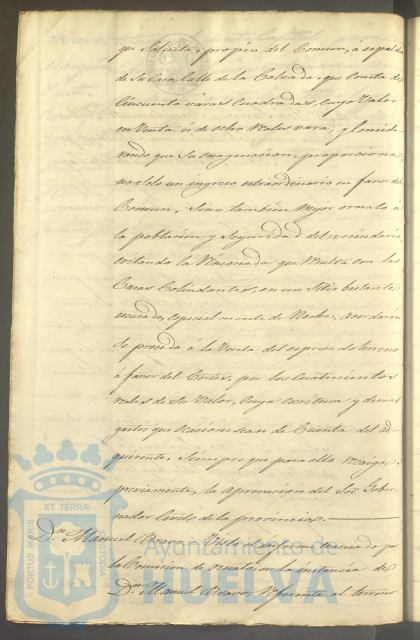 que solicita, propio del Comun, á espalda
de su Casa, Calle de la Calzada, que consta de
Cincuenta varas cuadradas, cuyo valor
en Venta es de ocho reales vara; y conside
rando que su enagenacion, proporciona
no solo un ingreso extraordinario en favor del
Comun, sino tambien mejor ornato á
la poblacion y seguridad del vecindario,
evitando la rinconada que resulta con las
Casas Colindantes, en un sitio bastante
escusado, especialmente de noche, acordaron
se proceda á la Venta del espresado terreno
á favor del Cortés, por los Cuatrocientos
reales de su valor, cuya escritura y demas
gastos que ocasione sean de Cuenta del ad
quirente, siempre que para ello recaiga
previamente, la aprovacion del Sor. Gober
nador Civil de la provincia.
Dn. Manuel Bravo. Visto el
por
la Comision de ornato, en la instancia de
Dn. Manuel Bravo, referente al terreno
PORTUS MARIS
ET TERRÆ
CUSTODIA
Ayuntamiento de
HUELVA